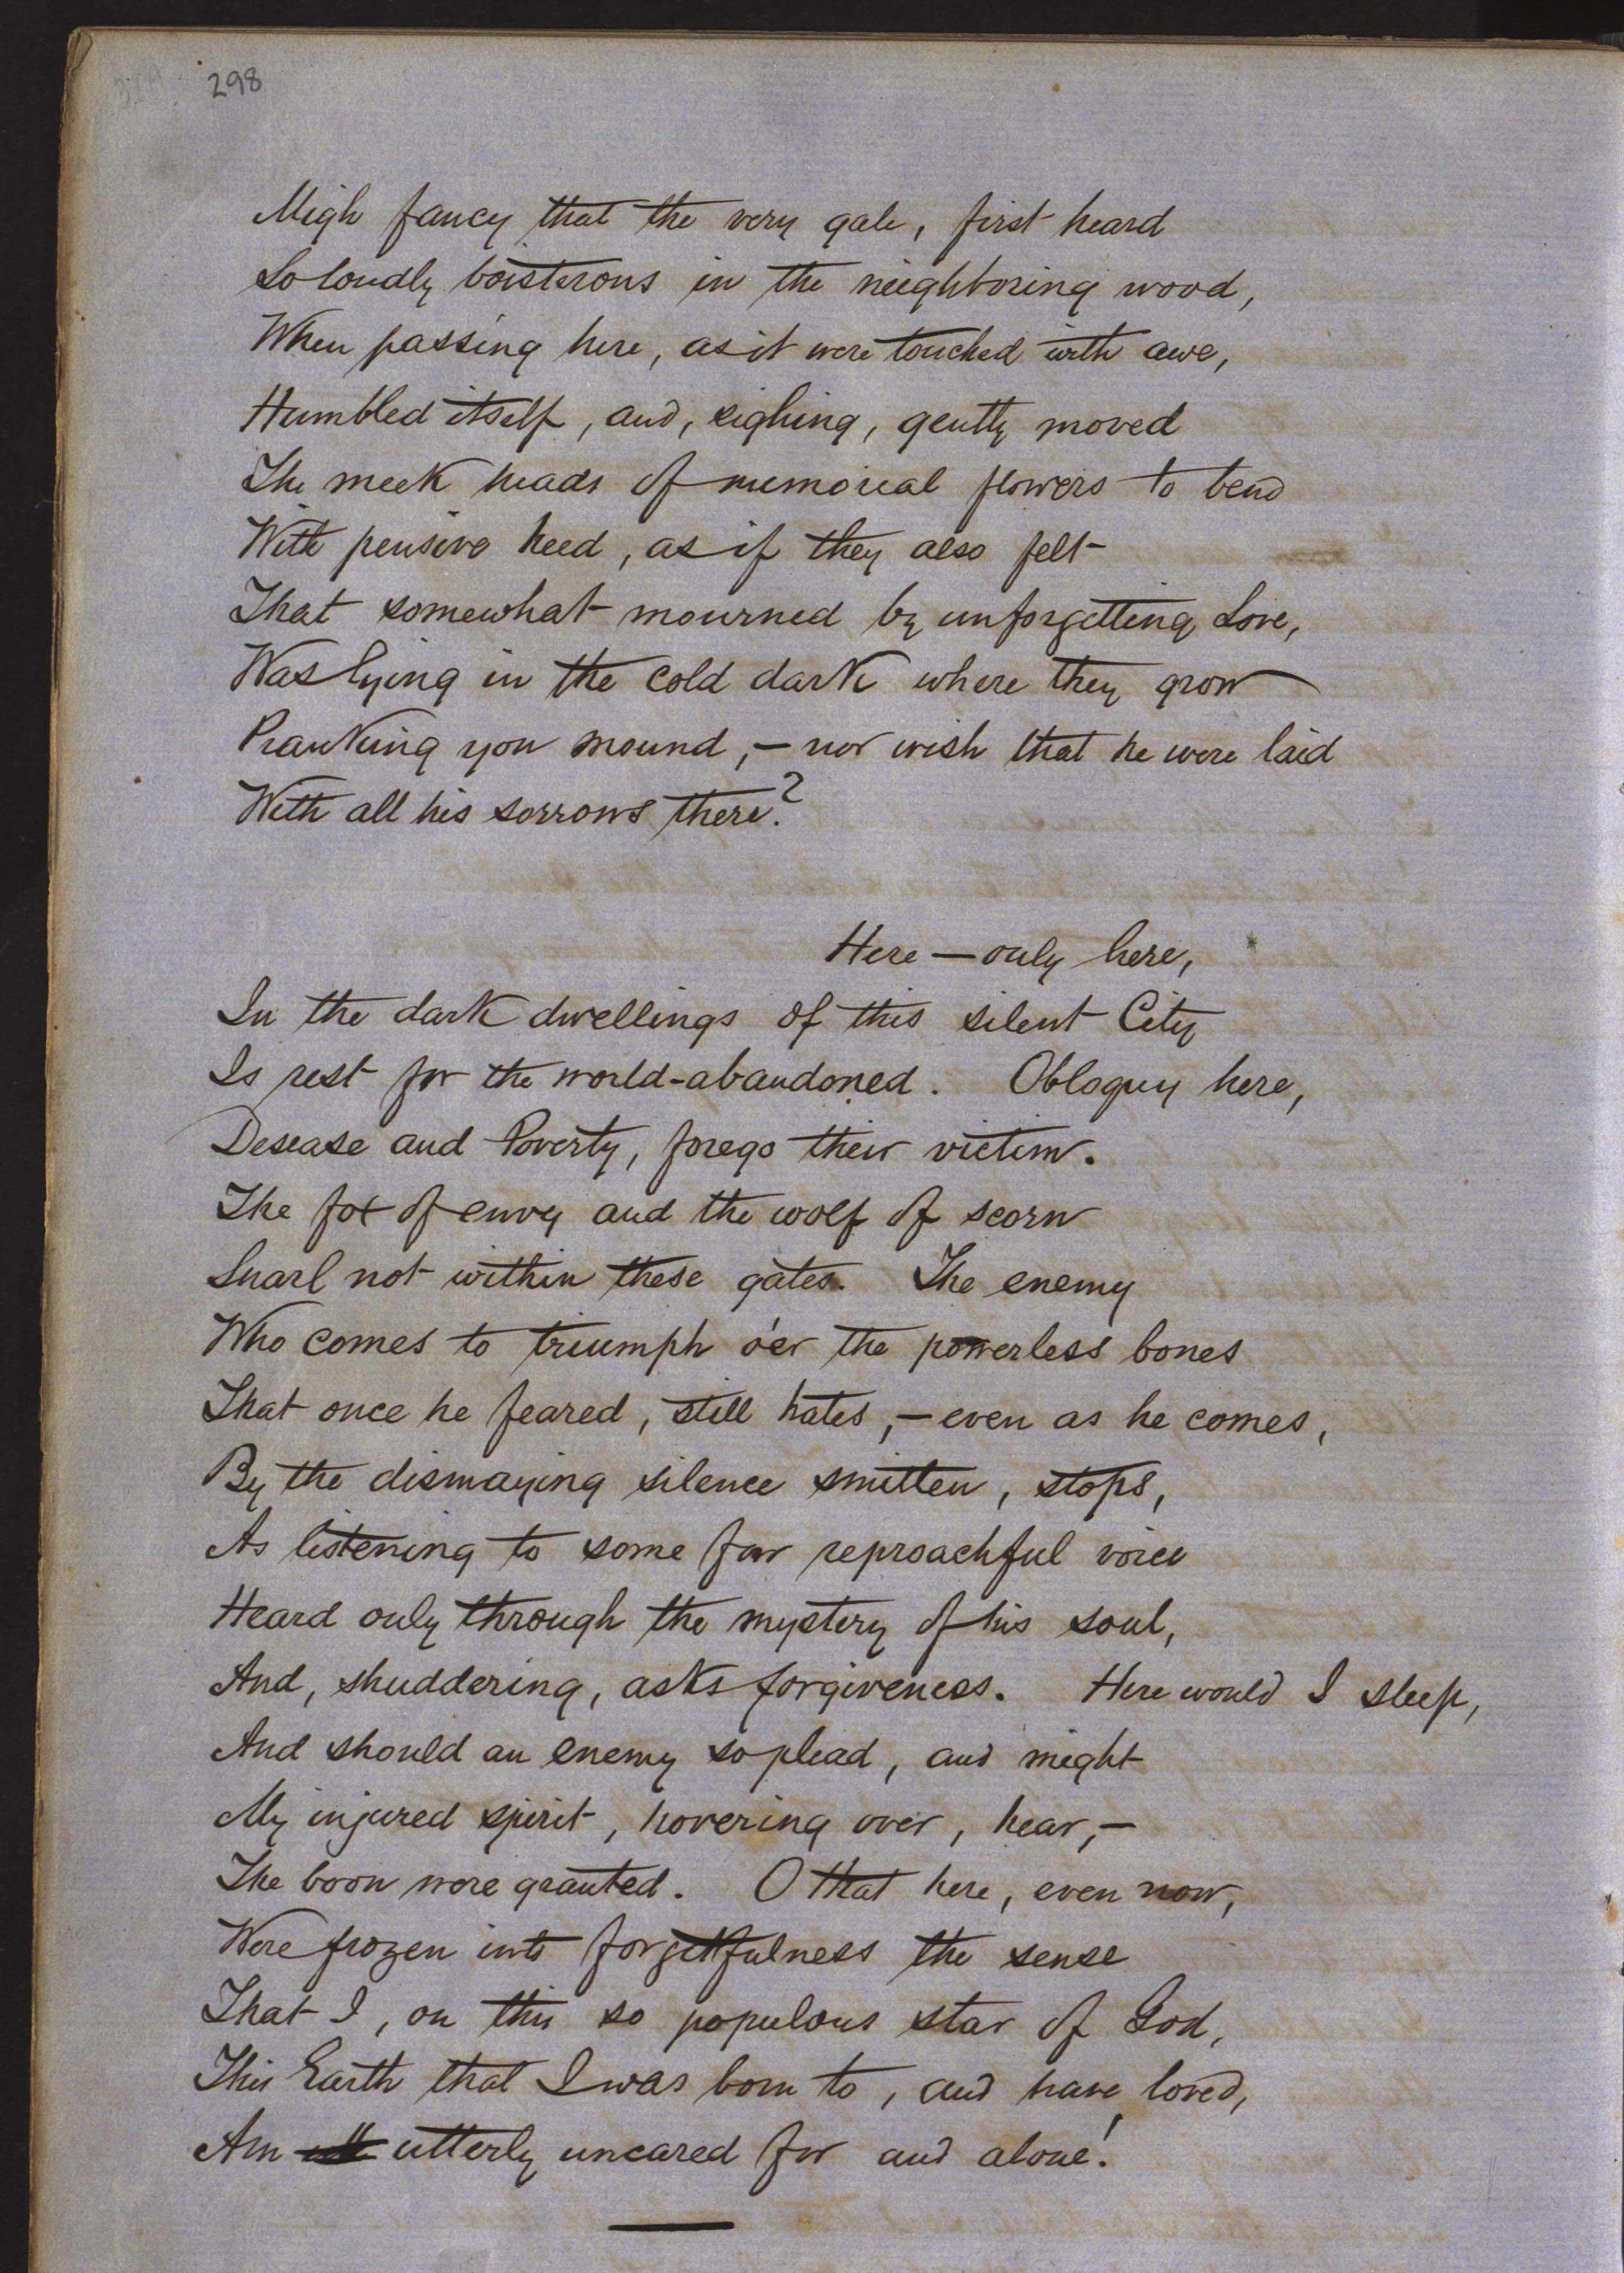 298
Migh fancy that the very gale, first heard
So loudly boisterous in the neighboring wood,
When passing here, as it were touched with awe,
Humbled itself, and, sighing, gently moved
The meek heads of memorial flowers to bend
With pensive heed, as if they also felt
That somewhat mourned by unforgetting Love,
Was lying in the cold dark where they grow
Pranking yon mound, — nor wish that he were laid
With all his sorrows there?
Here — only here,
In the dark dwellings of this silent City
Is rest for the world-abandoned. Obloquy here,
Desease and Poverty, forego their victim.
The fox of envy and the wolf of scorn
Snarl not within these gates. The enemy
Who comes to triumph o'er the powerless bones
That once he feared, still hates, — even as he comes,
By the dismaying silence smitten, stops,
As listening to some far reproachful voice
Heard only through the mystery of his soul,
And, shuddering, asks forgiveness. Here would I sleep,
And should an enemy so plead, and might
My injured spirit, hovering over, hear, —
The boon were granted. O that here, even now,
Were frozen into forgetfulness the sense
That I, on this so populous star of God,
This Earth that I was born to, and have loved,
Am utterly uncared for and alone!